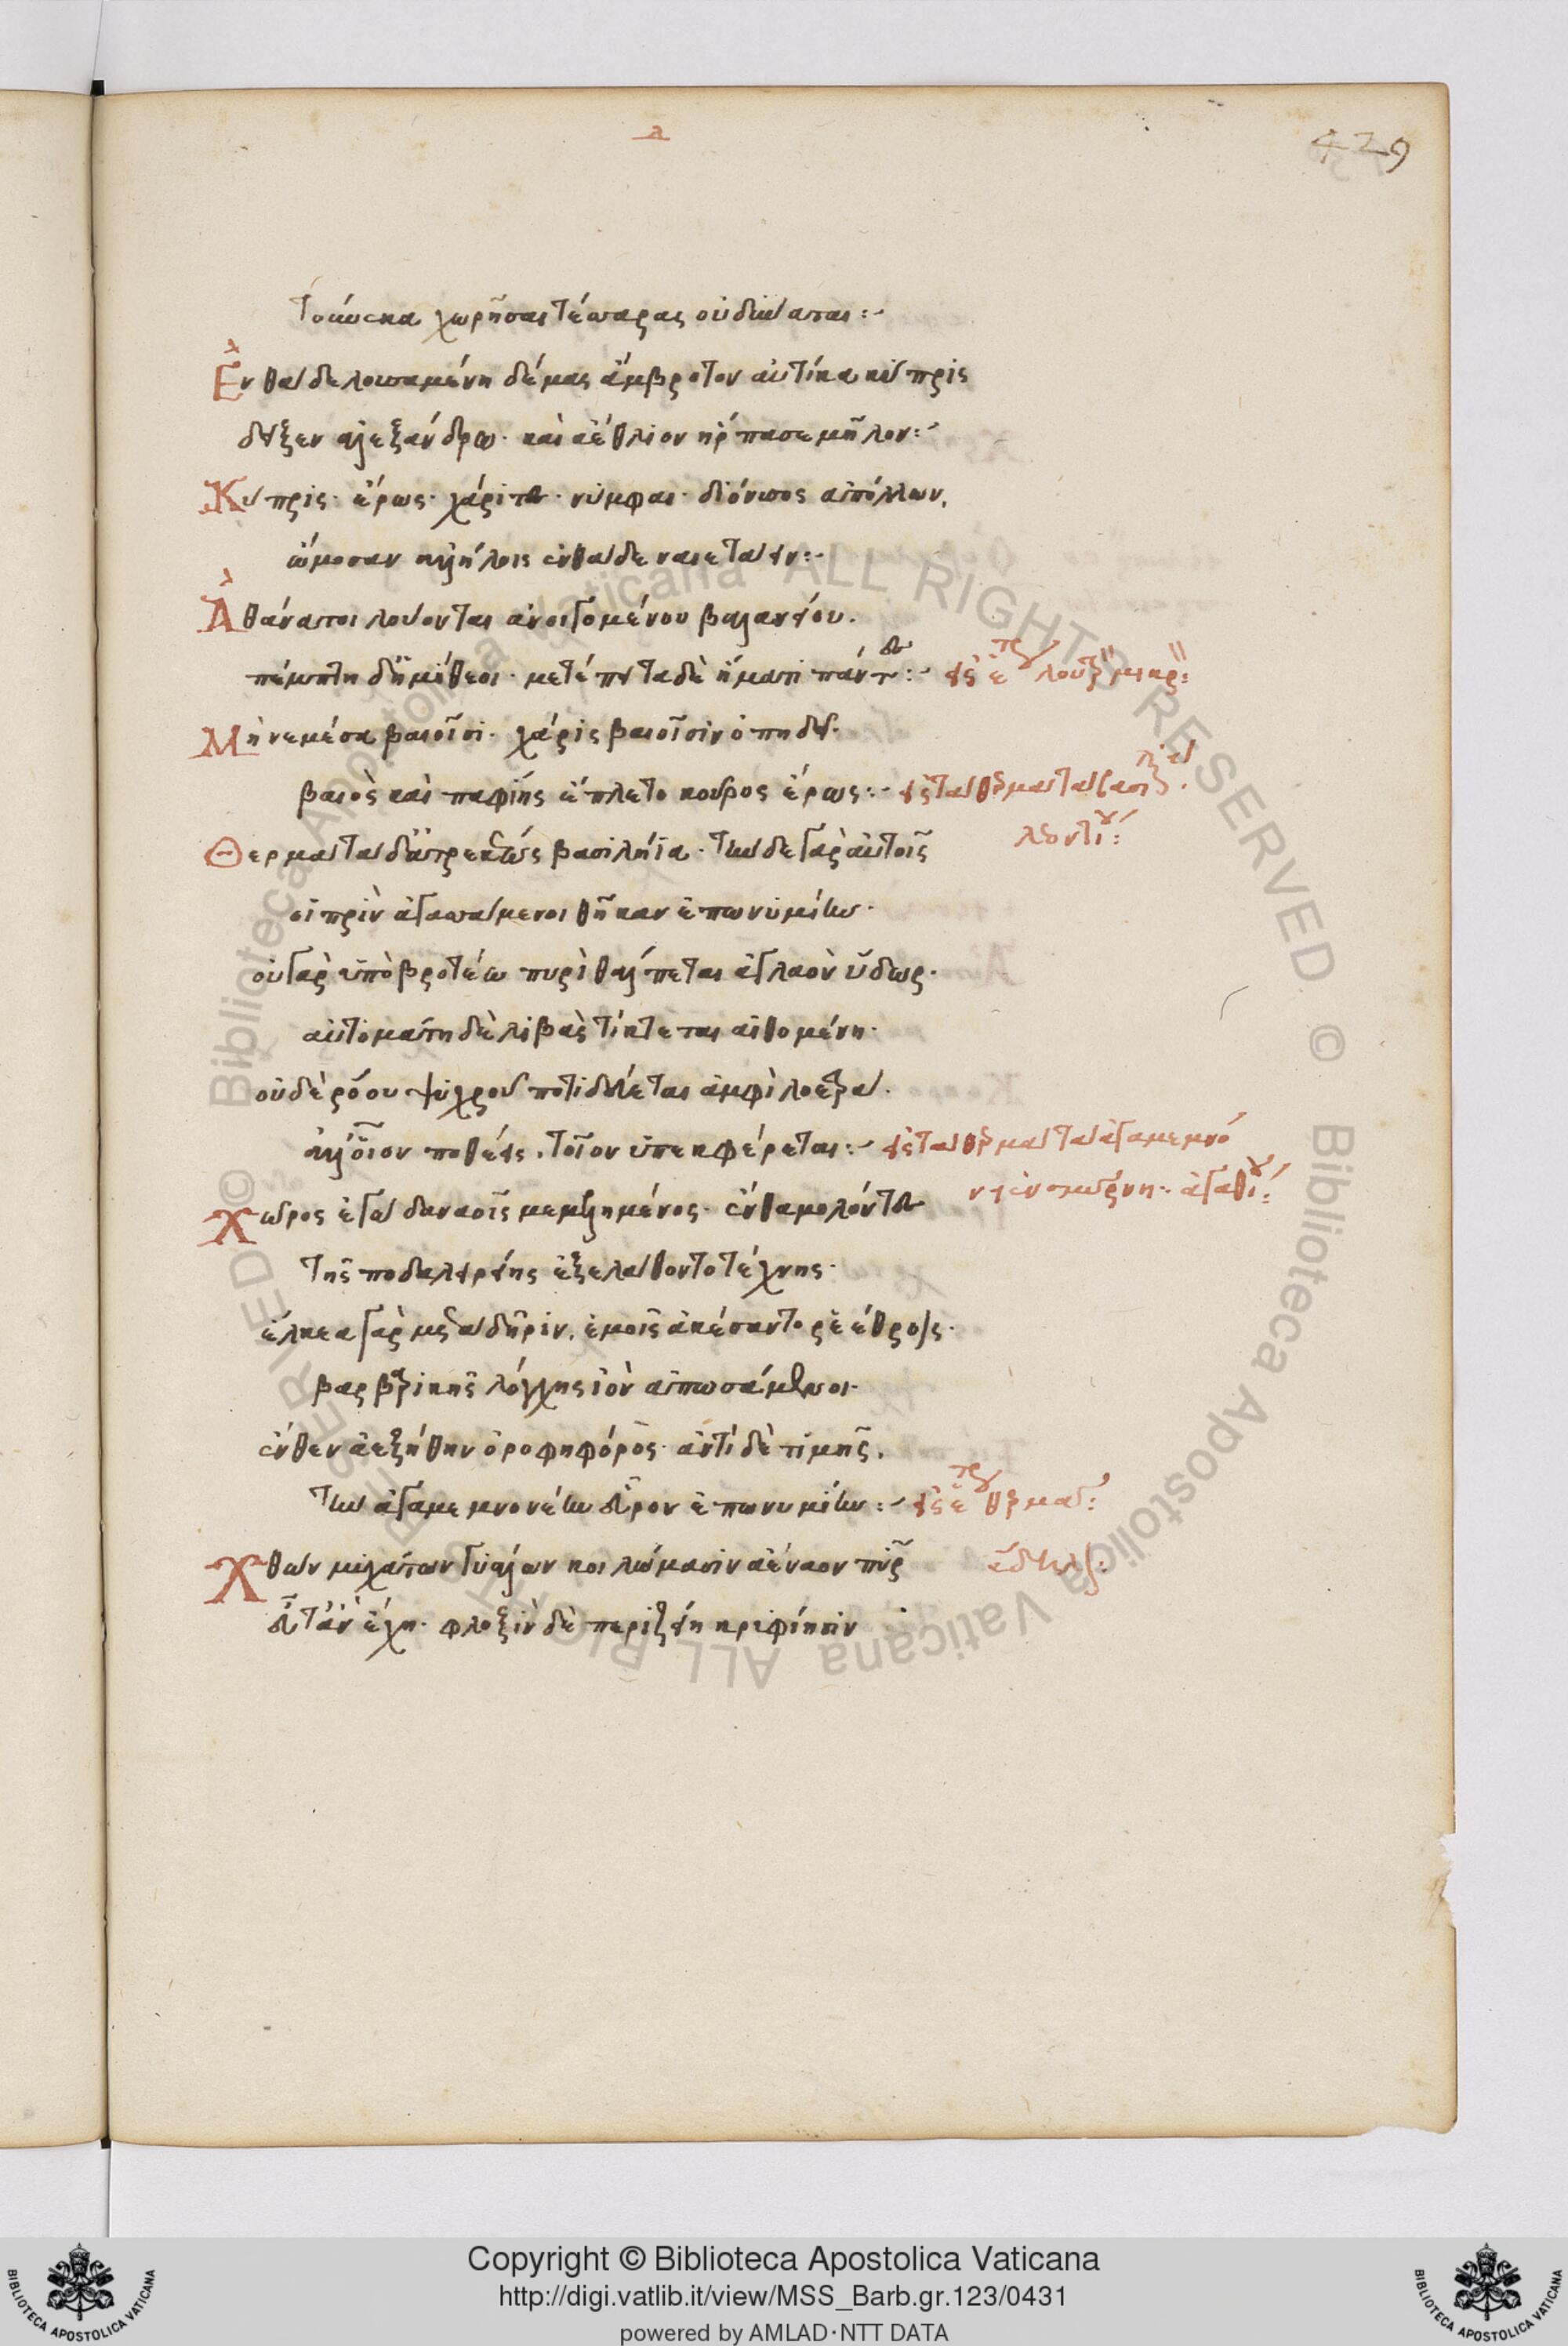 α
429
τούνεκα χωρῆσαι τέσσαρας οὐ δύναται:~
Ἔνθάδε λουσαμένη δέμας ἄμβροτον αὐτίκα κύπρις
δεῖξεν ἀλεξάνδρω· καὶ ἀέθλιον ἥρπασε μῆλον:~
Κύπρις· ἔρως· χάριτες· νύμφαι· διόνυσος ἀπόλλων,
ὤμοσαν ἀλλήλοις ἐνθάδε ναιετάειν:~
Ἀθάνατοι λούονται ἀνοιγομένου βαλανείου.
πέμπτη δ' ἡμίθεοι· μετέπειτα δὲ ἤματι πάντες:~ εἰς ἕτερον λουτρὸν μικρ:
Μὴ νεμέσα βαιοῖσι· χάρις βαιοῖσιν ὀπηδεῖ·
βαιὸς καὶ παφίης ἔπλετο κοῦρος ἔρως:~ εἰς τὰ θερμὰ τὰ βασιλικά.
λεοντίου:
Θερμὰ τάδ' ἀτρεκέως βασιλήϊα· τήνδε γὰρ αὐτοῖς
οἱ πρὶν ἀγασσάμενοι θῆκαν ἐπωνυμίην·
οὐ γὰρ ὑπὸ βροτέω πυρὶ θάλπεται ἀγλαὸν ὕδωρ·
αὐτομάτη δὲ λιβὰς τίκτεται αἰθομένη·
οὐδὲ ῥόου ψυχροῦ ποτιδεύεται ἀμφὶ λοετρά.
ἀλλ' οἷον ποθέεις, τοῖον ὑπεκφέρεται:~ εἰς τὰ θερμὰ τὰ ἀγαμεμνό
νεια ἐν σμύρνη· ἀγαθίου:
Χῶρος ἐγὼ δαναοῖς μεμελημένος· ἔνθα μολόντες
τῆς ποδαλειρείης ἐξελάθοντο τέχνης·
ἕλκεα γὰρ μετὰ δῆριν, ἐμοῖς ἀκέσαντο ῥεέθροις·
βαρβαρικῆς λόγχης ἰὸν ἀπωσάμενοι·
ἔνθεν ἀεξήθην ὀροφηφόρος· ἀντὶ δὲ τιμῆς,
τὴν ἀγαμεμνονέην εὗρον ἐπωνυμίην:~ εἰς ἕτερον θερμὰ:
Χθὼν μυχάτων γυάλων κοιλώμασιν ἀέναον πῦρ
εὖτ' ἂν ἔχη· φλοξὶν δὲ περιζείη κρυφίησιν